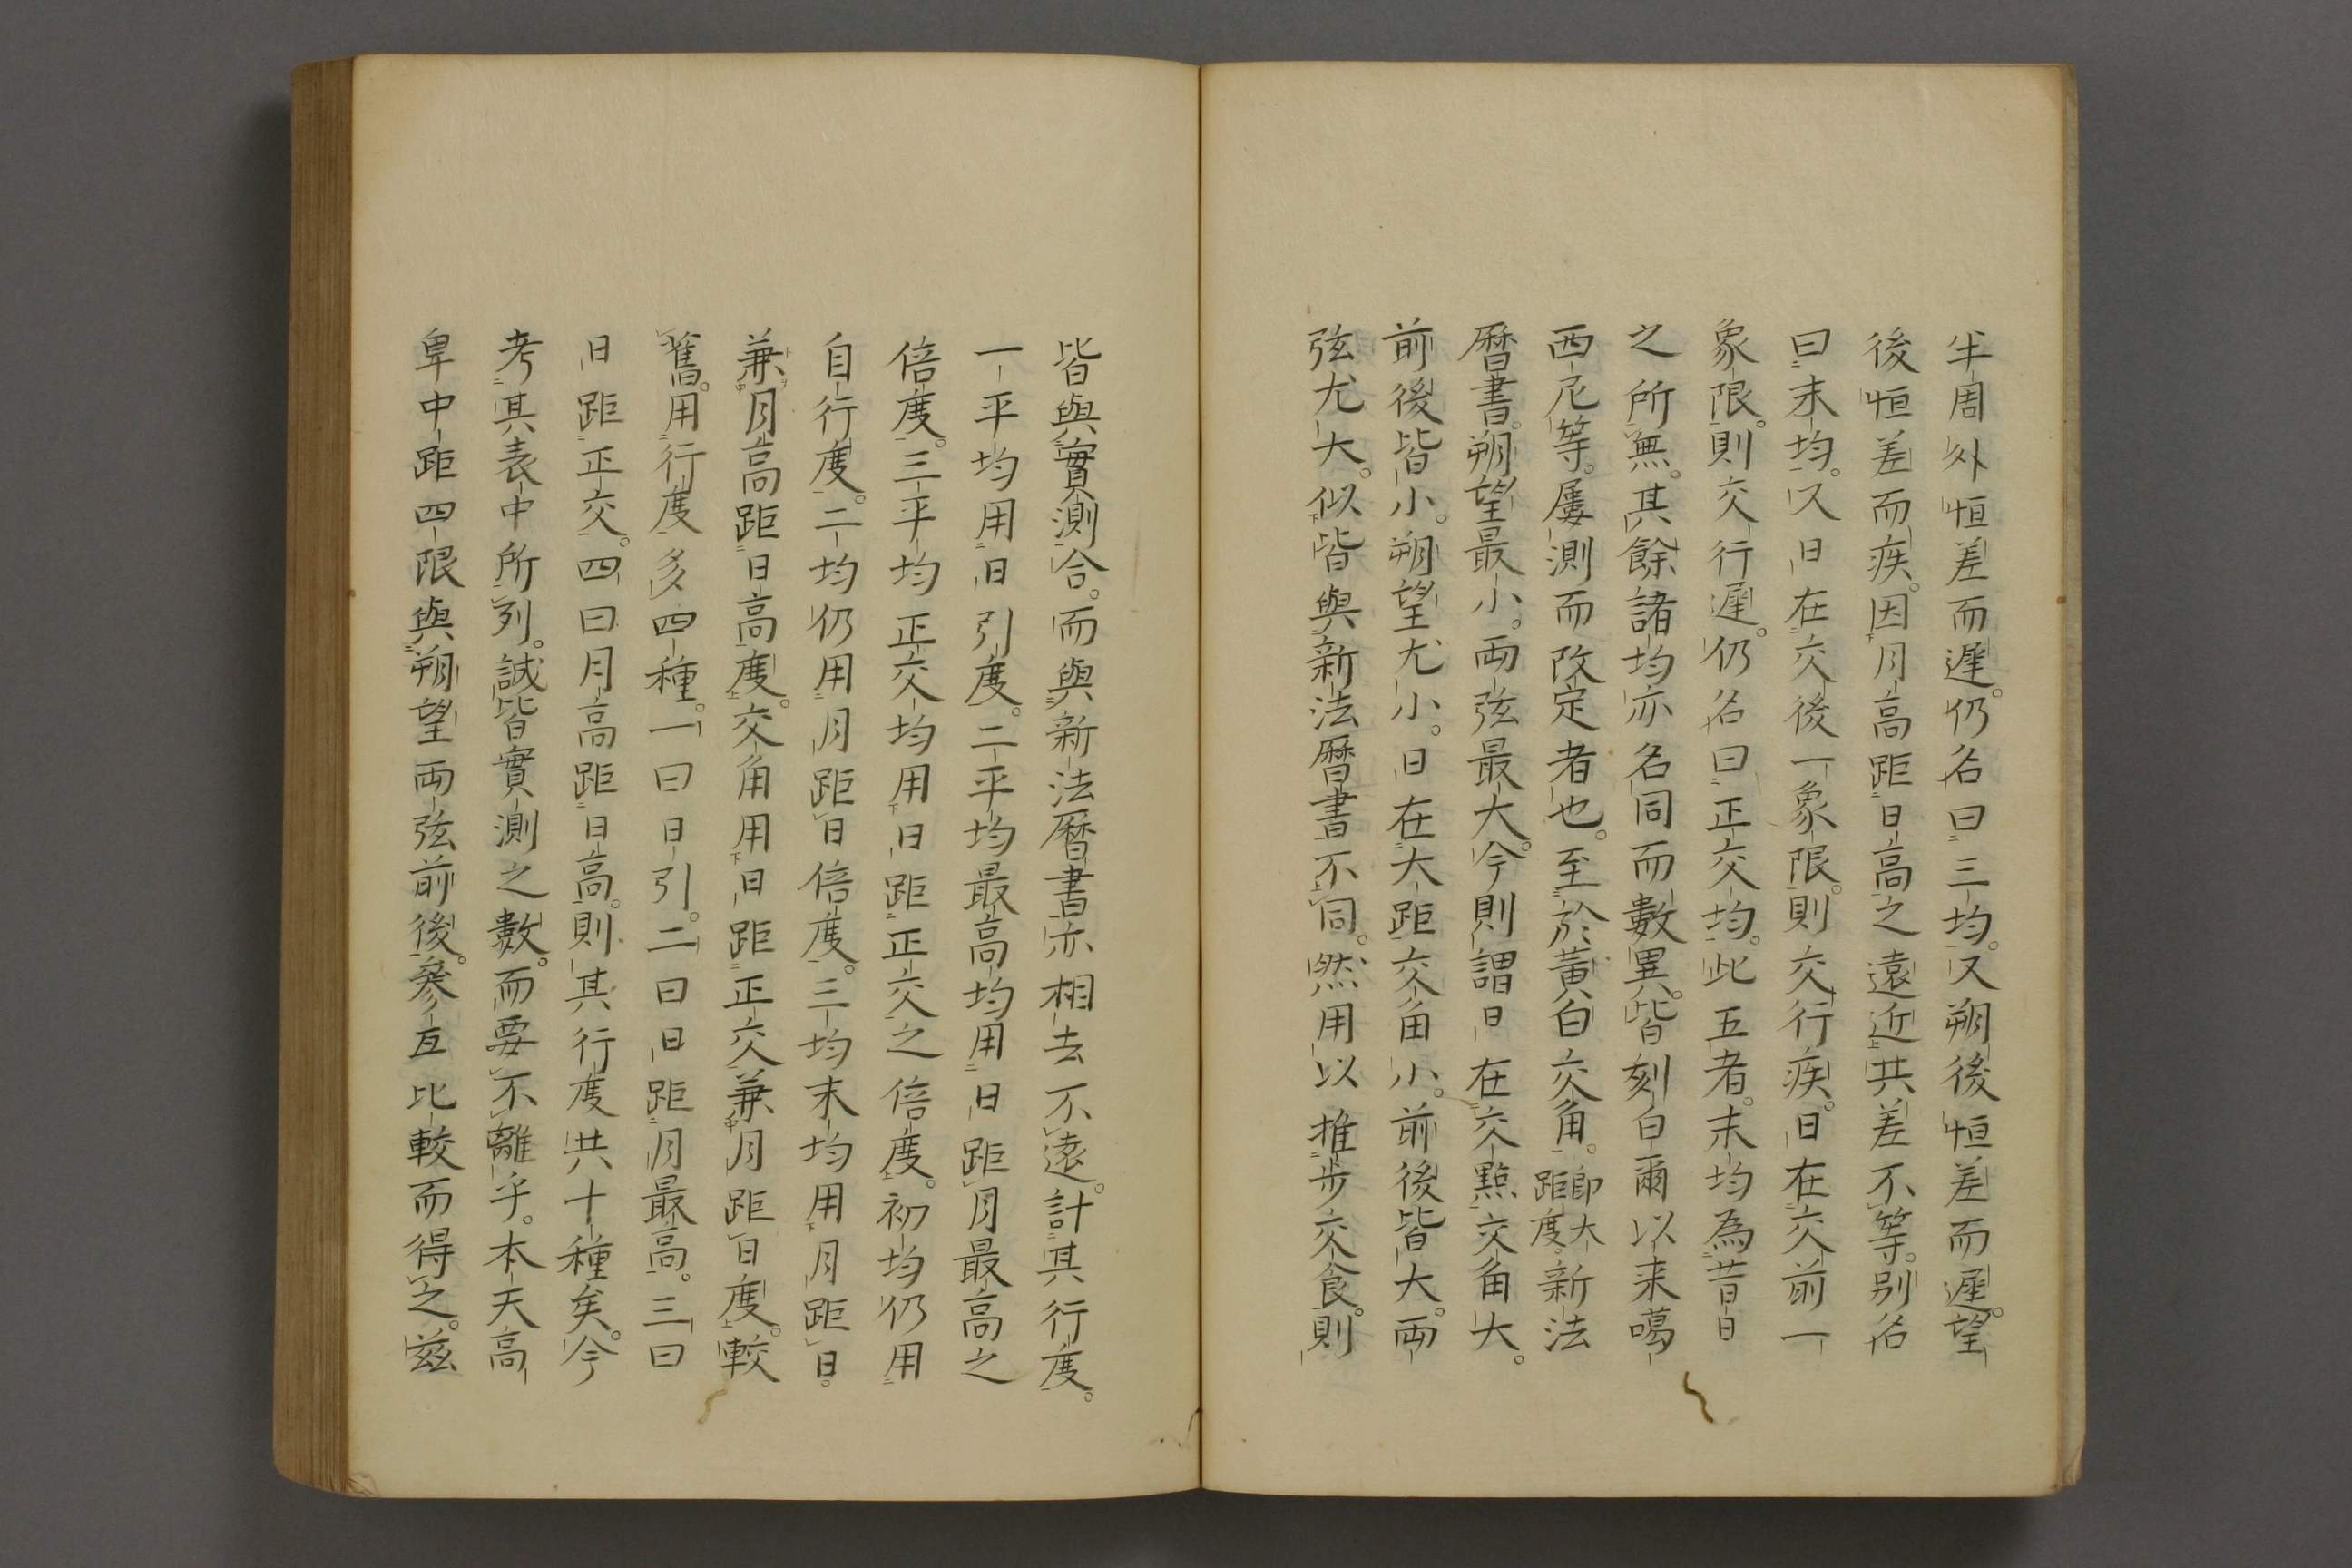 半周外恒差而遲。仍名曰三均。又朔後恒差而遲。望
後恒差而疾。因月高距日高之遠近共差不等。别名
曰末均。又日在交後一象限。則交行疾。日在交前一
象限。則交行遲。仍名曰正交均。此五者。末均為昔日
之所無。其餘諸均亦名同而數異。皆刻白爾以来噶
西尼等。屢測而改定者也。至於黄白交角。即大距度。新法
曆書。朔望最小。兩弦最大。今則謂日在交點交角大。
前後皆小。朔望尤小。日在大距交角小。前後皆大。兩
弦尤大。似皆與新法曆書不同。然用以推步交食。則
皆與實測合。而與新法曆書亦相去不遠。計其行度。
一平均用日引度。二平均最高均用日距月最高之
倍度。三平均正交均用日距正交之倍度。初均仍用
自行度。二均仍用月距日倍度。三均末均用月距日。
兼月高距日高度。交角用日距正交兼月距日度。較
舊。用行度多四種。一曰日引。二曰日距月最高。三曰
日距正交。四曰月高距日高。則其行度共十種矣。今
考其表中所列。誠皆實測之數。而要不離乎。本天高
卑中距四限與朔望兩弦前後。參互比較而得之。兹